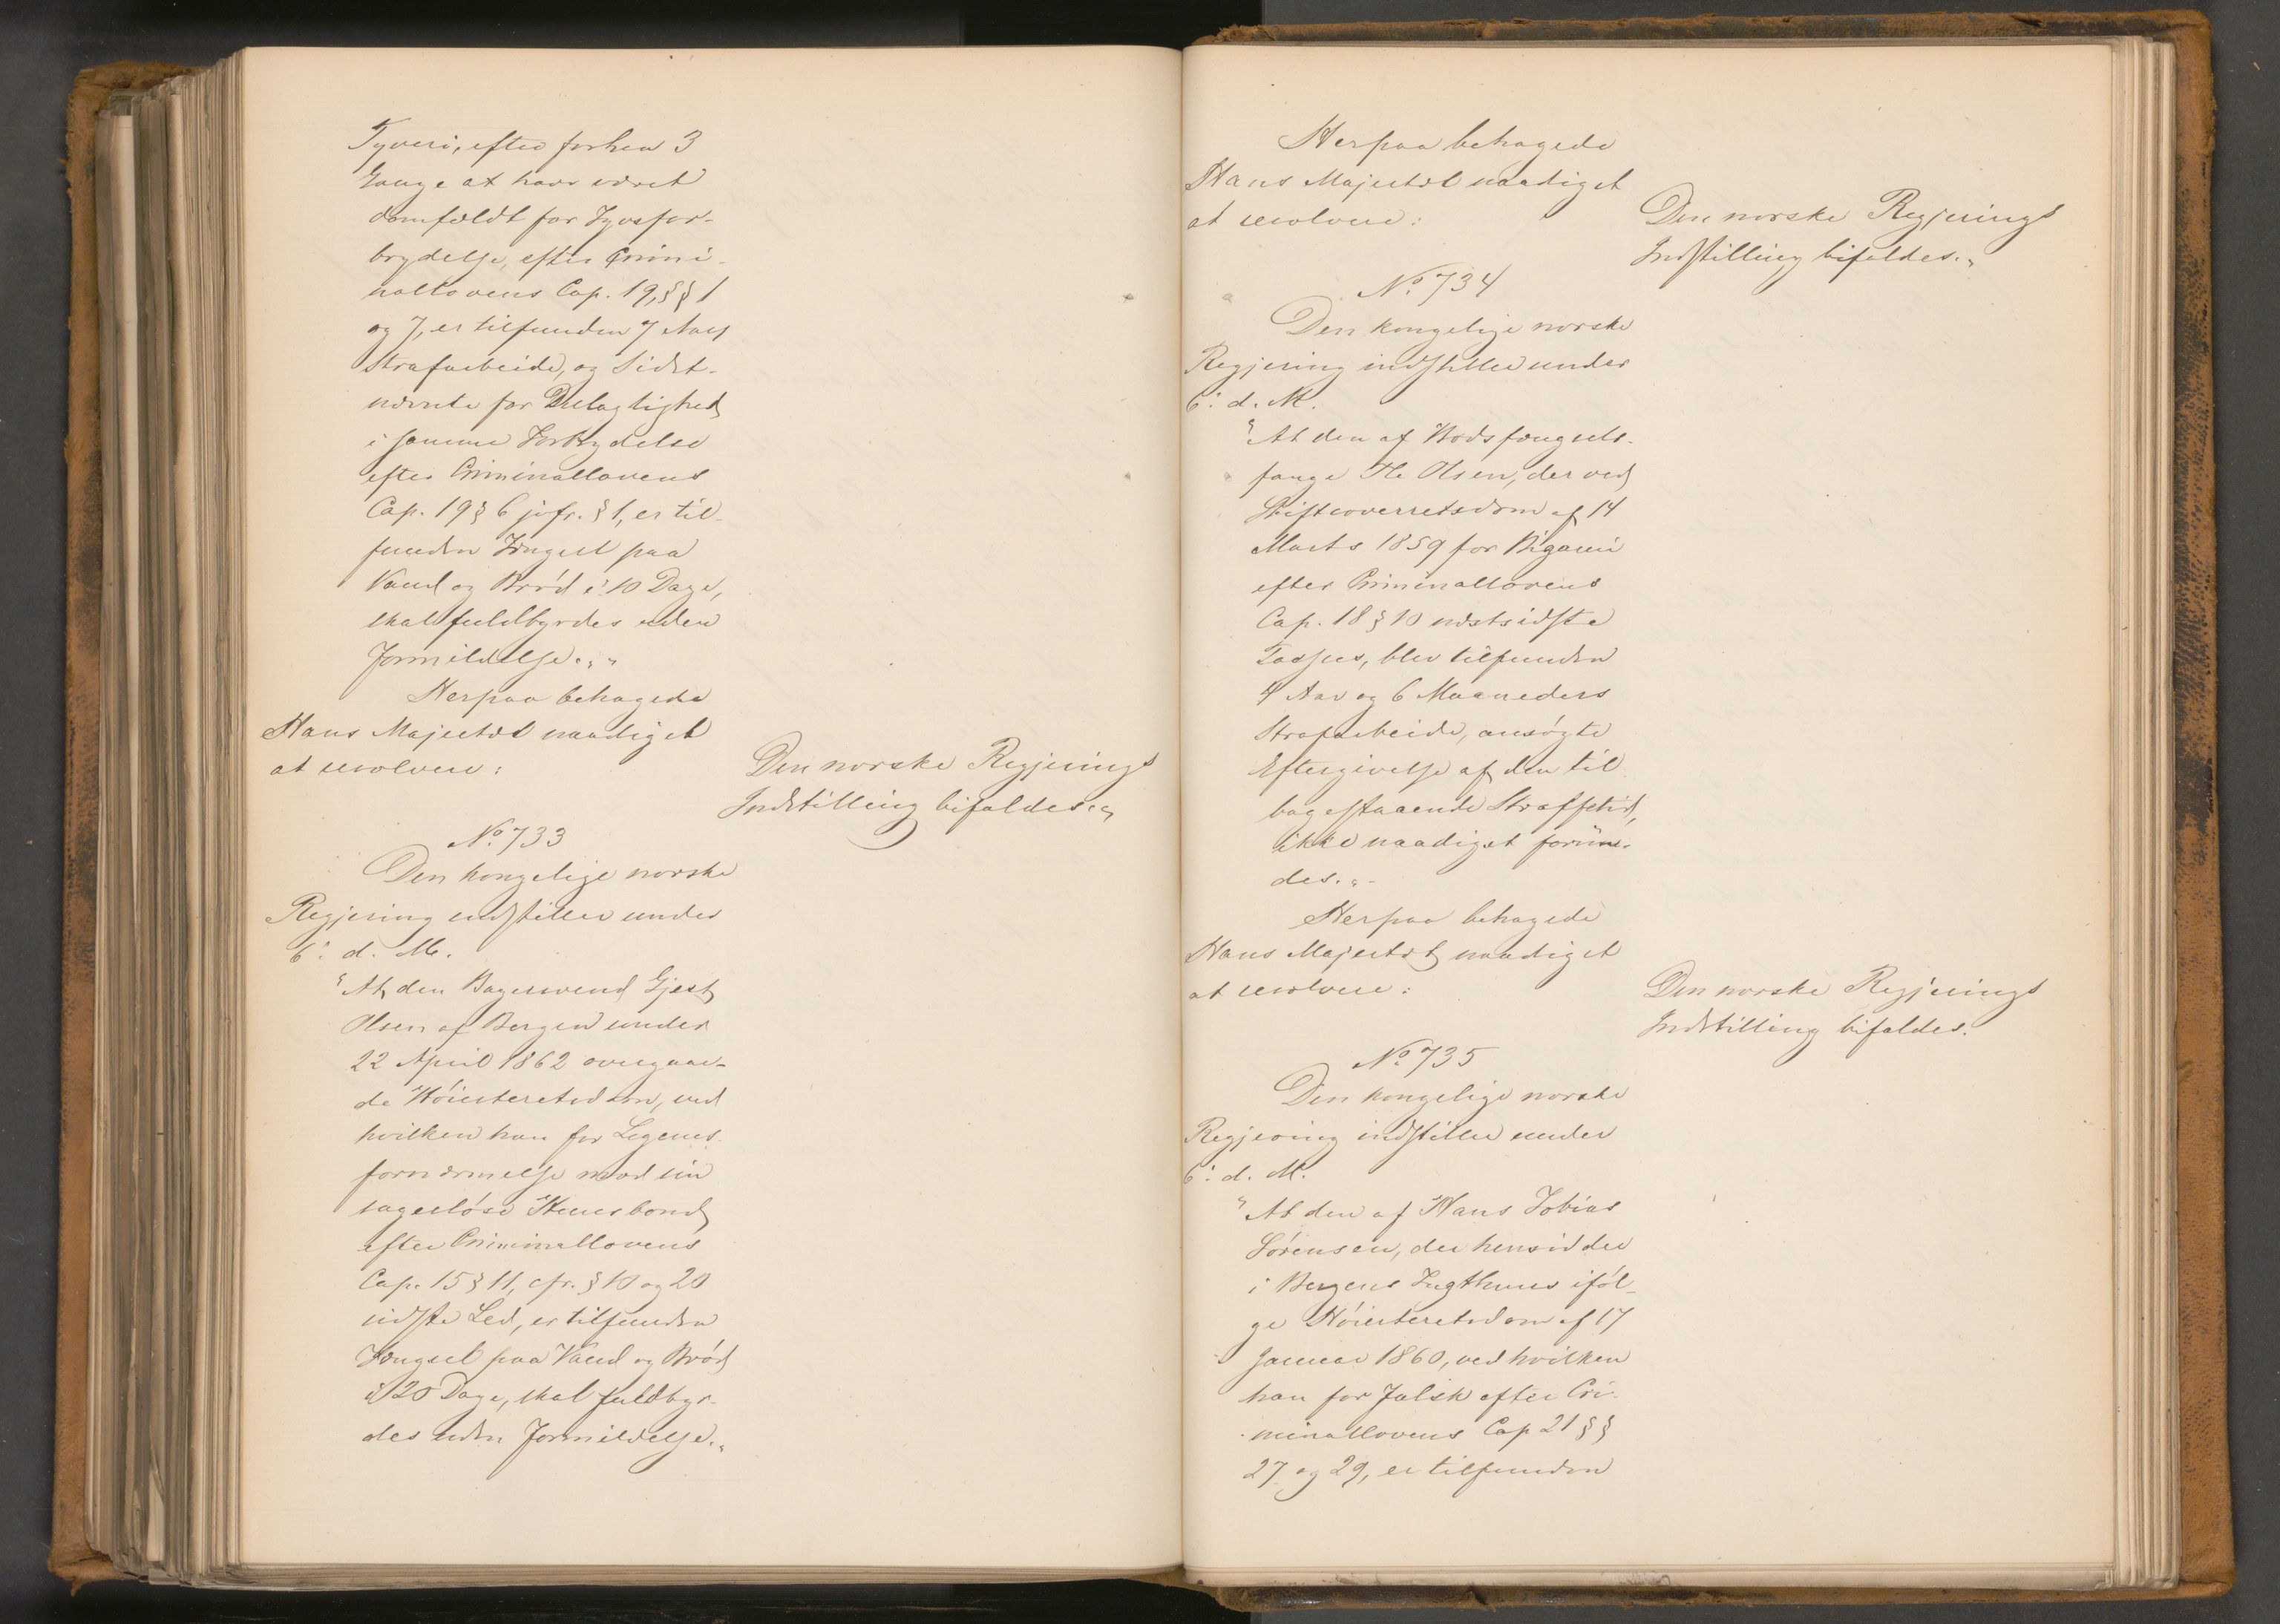 Tyveri, efter forhen 3
Gange at have været
domfældt for Tyvsfor-
brydelse, efter Crimi-
nallovens Cap. 19, § § 1
og 7, er tilfunden 7 Aars
Strafarbeide, og Sidst-
nævnte for Delagtighed
i samme Forbrydelse
efter Criminallovens
Cap. 19 § 6 jvfr. § 1, er til-
funden Fængsel paa
Vand og Brød i 10 Dage,
skal fuldbyrdes uden
Formildelse."
Herpaa behagede
Hans Majestæt naadigst
at resolvere:
Den norske Regjerings
Indstilling bifaldes."
No. 733
Den kongelige norske
Regjering indstiller under
6: d. M.
"At den Bagersvend Gjest
Olsen af Bergen under
22 April 1862 overgaae-
de Høiesteretsdom, ved
hvilken han for Legems-
fornærmelse mod sin
sagesløse Huusbond
efter Criminallovens
Cap. 15 § 11, cfr. § 10 og 20
sidste Led, er tilfunden
Fængsel paa Vand og Brød
i 20 Dage, skal fuldbyr-
des uden Formildelse."
Herpaa behagede
Hans Majestæt naadigst
at resolvere:
Den norske Regjerings
Indstilling bifaldes."
No. 734
Den kongelige norske
Regjering indstiller under
6: d. M.
"At den af Bodsfængsels-
fange Ole Olsen, der ved
Stiftsoverretsdom af 14
Marts 1859 for Bigami
efter Criminallovens
Cap. 18 § 10 næstsidste
Passus, blev tilfunden
4 Aar og 6 Maaneders
Strafarbeide, ansøgte
Eftergivelse af den til-
bagestaaende Straffetid,
ikke naadigst forun-
des."
Herpaa behagede
Hans Majestæt naadigst
at resolvere:
Den norske Regjerings
Indstilling bifaldes.
No. 735
Den kongelige norske
Regjering indstiller under
6: d. M.
"At den af Hans Tobias
Sørensen, der hensidder
i Bergens Tugthuus iføl-
ge Høiesteretsdom af 17
Januar 1860, ved hvilken
han for Falsk efter Cri-
minallovens Cap 21 § §
27 og 29, er tilfunden